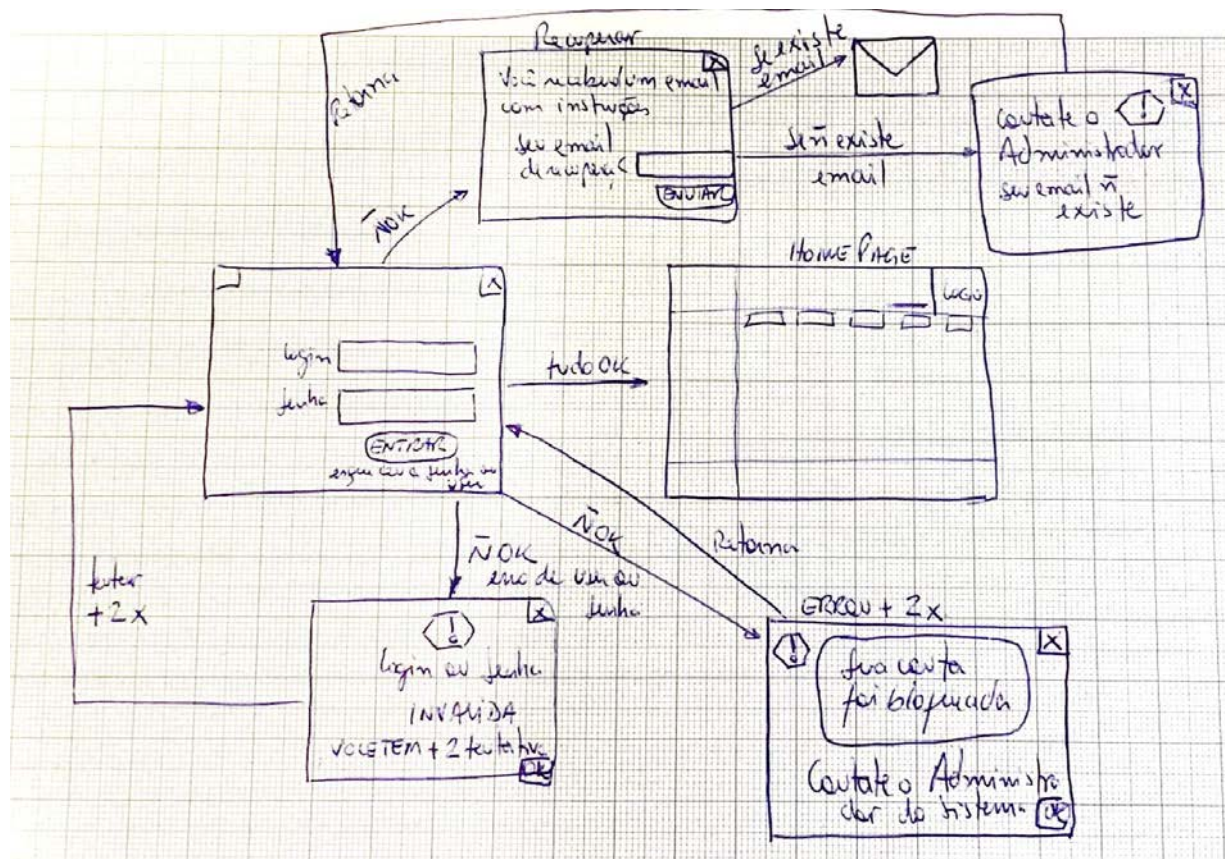 Recuperar
Você receberá um email
com instruções
seu email
de recuperaç
ENVIAR
se existe
email
se ñ existe
email
contate o
Administrador
seu email ñ
existe
Retorna
ÑOK
login
senha
ENTRAR
esqueceu a senha ou
user
tudo OK
HOME PAGE
LOGO
ÑOK
erro de user ou
senha
ÑOK
Retorna
tentar
+ 2 x
login ou senha
INVALIDA
VOCE TEM + 2 tentativa
OK
ERROU + 2 x
sua conta
foi bloqueada
Contate o Administra
dor do sistema
OK